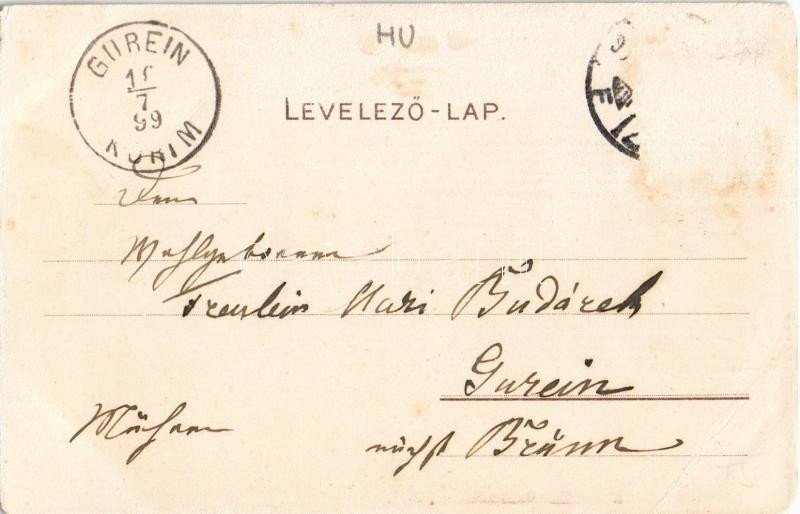 HU
GUREIN
7
99
KUŘIM
LEVELEZŐ-LAP.
F
Wohlgeboren
Fräulein Mari Budárek
Gurein
Mähren nächst Brünn
darabanth